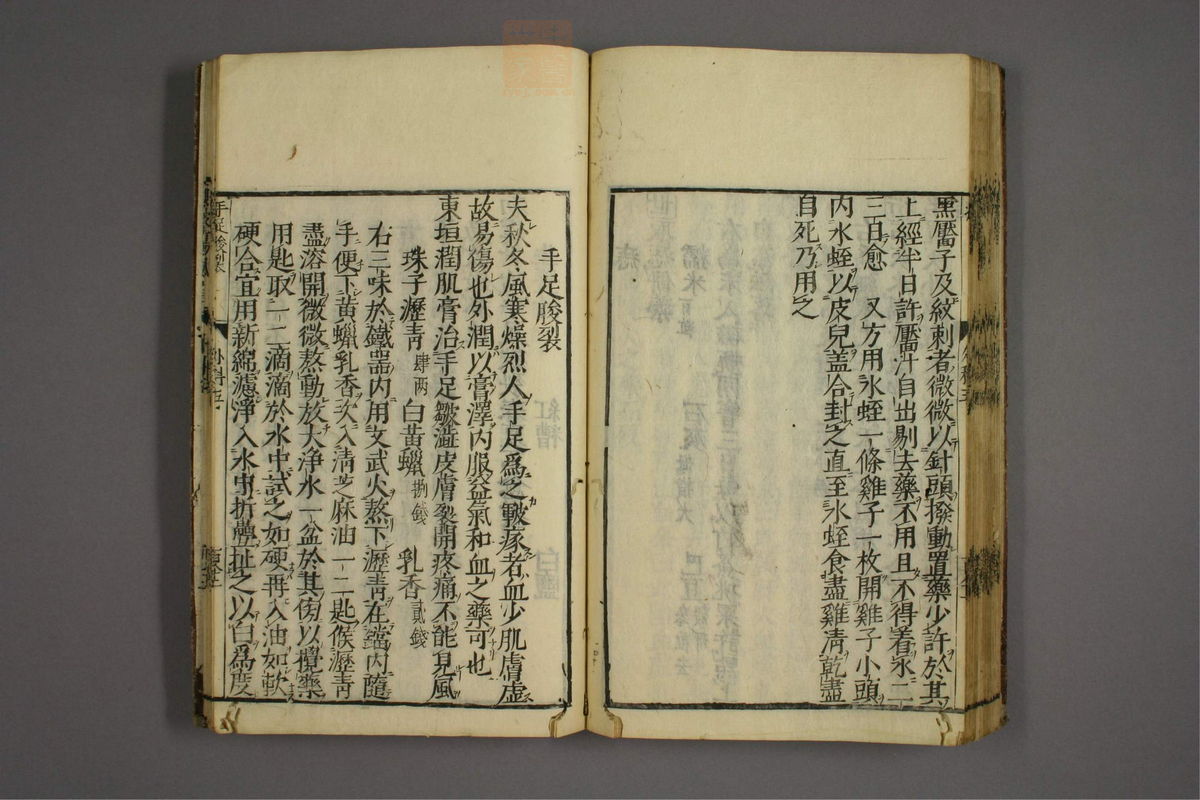 黑靨子及紋刺者微微以針頭撥動置藥少許於其
上經半日許靨汁自出剔去藥不用且不得着水二
三日愈　又方用水蛭一條雞子一枚開雞子小頭
内水蛭以皮兒盖合封之直至水蛭食盡雞淸乾盡
自死乃用之
手足朘裂
夫秋冬風寒燥烈人手足爲之皸瘃者血少肌膚虛
故易傷也外潤以膏澤内服益氣和血之藥可也
東垣潤肌膏治手足皺澁皮膚裂開疼痛不能見風
珠子瀝靑肆兩　白黃蠟捌錢　乳香貳錢
右三味於鐵器内用文武火熬下瀝靑在鐺内隨
手便下黃蠟乳香次入淸芝麻油一二匙候瀝靑
盡溶開微微熬動放大浄水一盆於其傍以攪藥
用匙取一二滴滴於水中試之如硬再入油如軟
硬合宜用新綿濾淨入水中折疊扯之以白爲度